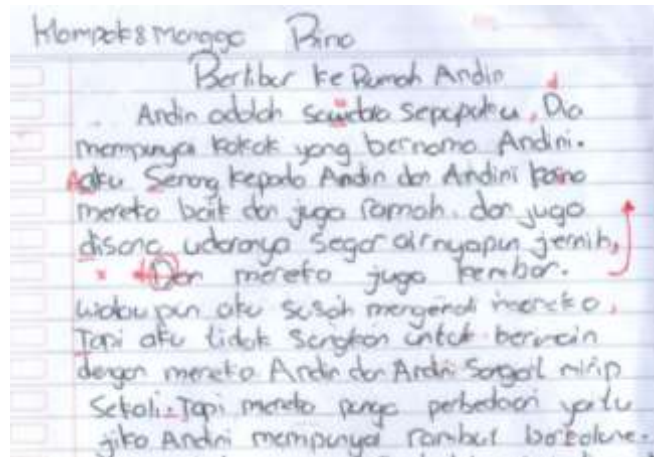 Klompok 8 Manggo Bino
Berlibur ke Rumah Andin
Andin adalah saudara sepupuku, Dia
mempunyai kakak yang bernama Andini.
Aaku Senang kepada Andin dan Andini karna
mereka baik dan juga ramah. dan juga
disana udaranya segar airnyapun jernih,
Dan mereka juga kembar.
walaupun aku susah mengenali mereka,
Tapi aku tidak sungkan untuk bermain
dengan mereka Andin dan Andini Sangat mirip
Sekali. Tapi mereka punya perbedaan yaitu
jika Andini mempunyai rambut